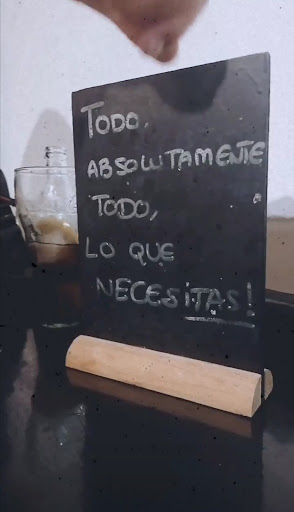 TODO,
ABSOLUTAMENTE
TODO,
LO QUE
NECESITAS!